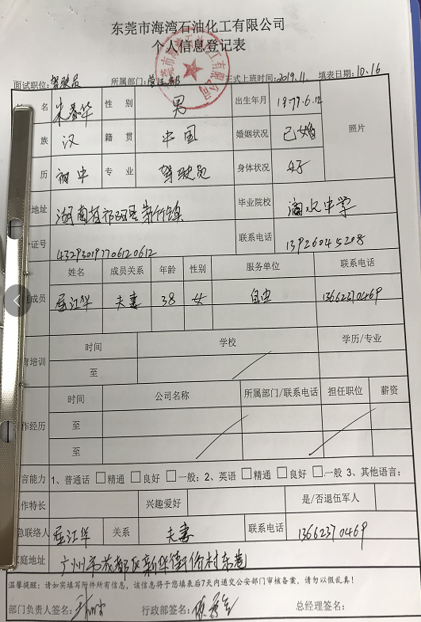 东莞市海湾石油化工有限公司
个人信息登记表
面试职位: 驾驶员 所属部门: 正式上班时间: 2019.11. 填表日期: 10.16
名 朱春华 性别 男 出生年月 1977.6.12
族 汉 籍贯 中国 婚姻状况 已婚 照片
历 初中 专业 驾驶员 身体状况 好
地址 湖南省祁阳县 毕业院校 中学
证号 432930197706120612 联系电话 13926045208
姓名 成员关系 年龄 性别 服务单位 联系电话
成员 江华 夫妻 38 女 自由 13662370469
时间 学校 学历/专业
培训 至
时间 公司名称 所属部门/联系电话 担任职位 薪资
作经历 至
至
言能力 1、普通话 □精通 □良好 □一般; 2、英语 □精通 □良好 □一般 3、其他语言:
作特长 兴趣爱好 是/否退伍军人
急联络人 江华 关系 夫妻 联系电话 13662370469
家庭地址 广州市花都区新华街 村东巷
温馨提醒: 请如实填写附件所有信息, 该信息将于您填表后7天内递交公安部门审核备案, 请勿以假乱真!
部门负责人签名: 行政部签名: 总经理签名: